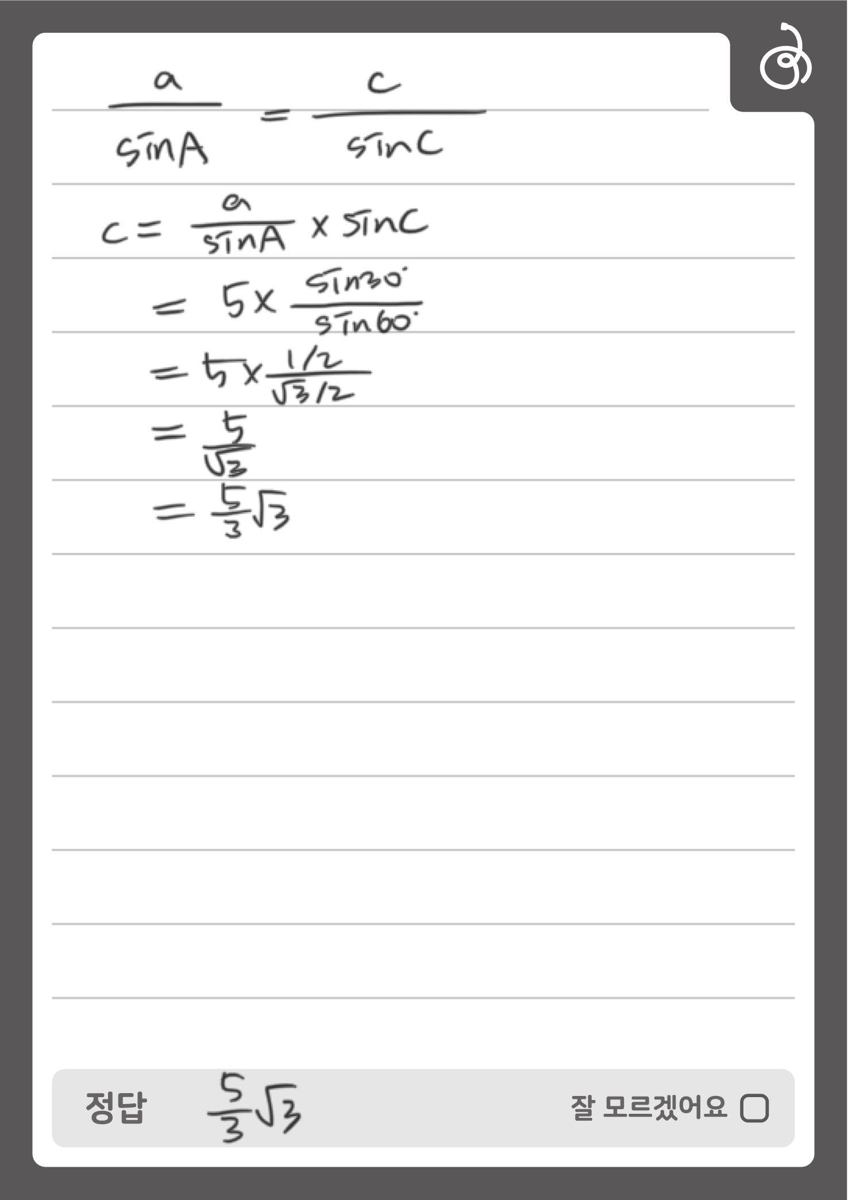 a/sinA = c/sinC
c = a/sinA × sinC
= 5 × sin30°/sin60°
= 5 × (1/2)/(√3/2)
= 5/√3
= 5/3 √3
정답 5/3 √3 잘 모르겠어요